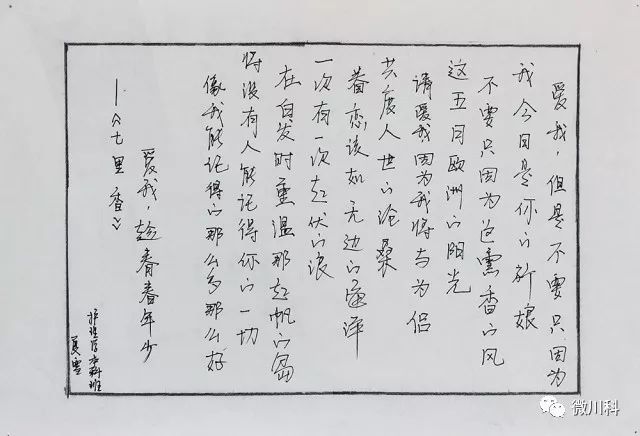 爱我，但是不要只因为
我今日是你的新娘
不要只因为这熏香的风
这五月欧洲的阳光
请爱我因为我将与为侣
共度人世的沧桑
眷恋该如无边的海洋
一次有一次起伏的浪
在白发时重温那起帆的岛
将没有人能记得你的一切
像我能记得的那么多那么好
爱我，趁青春年少
——《七里香》
护理学本科班
微川科